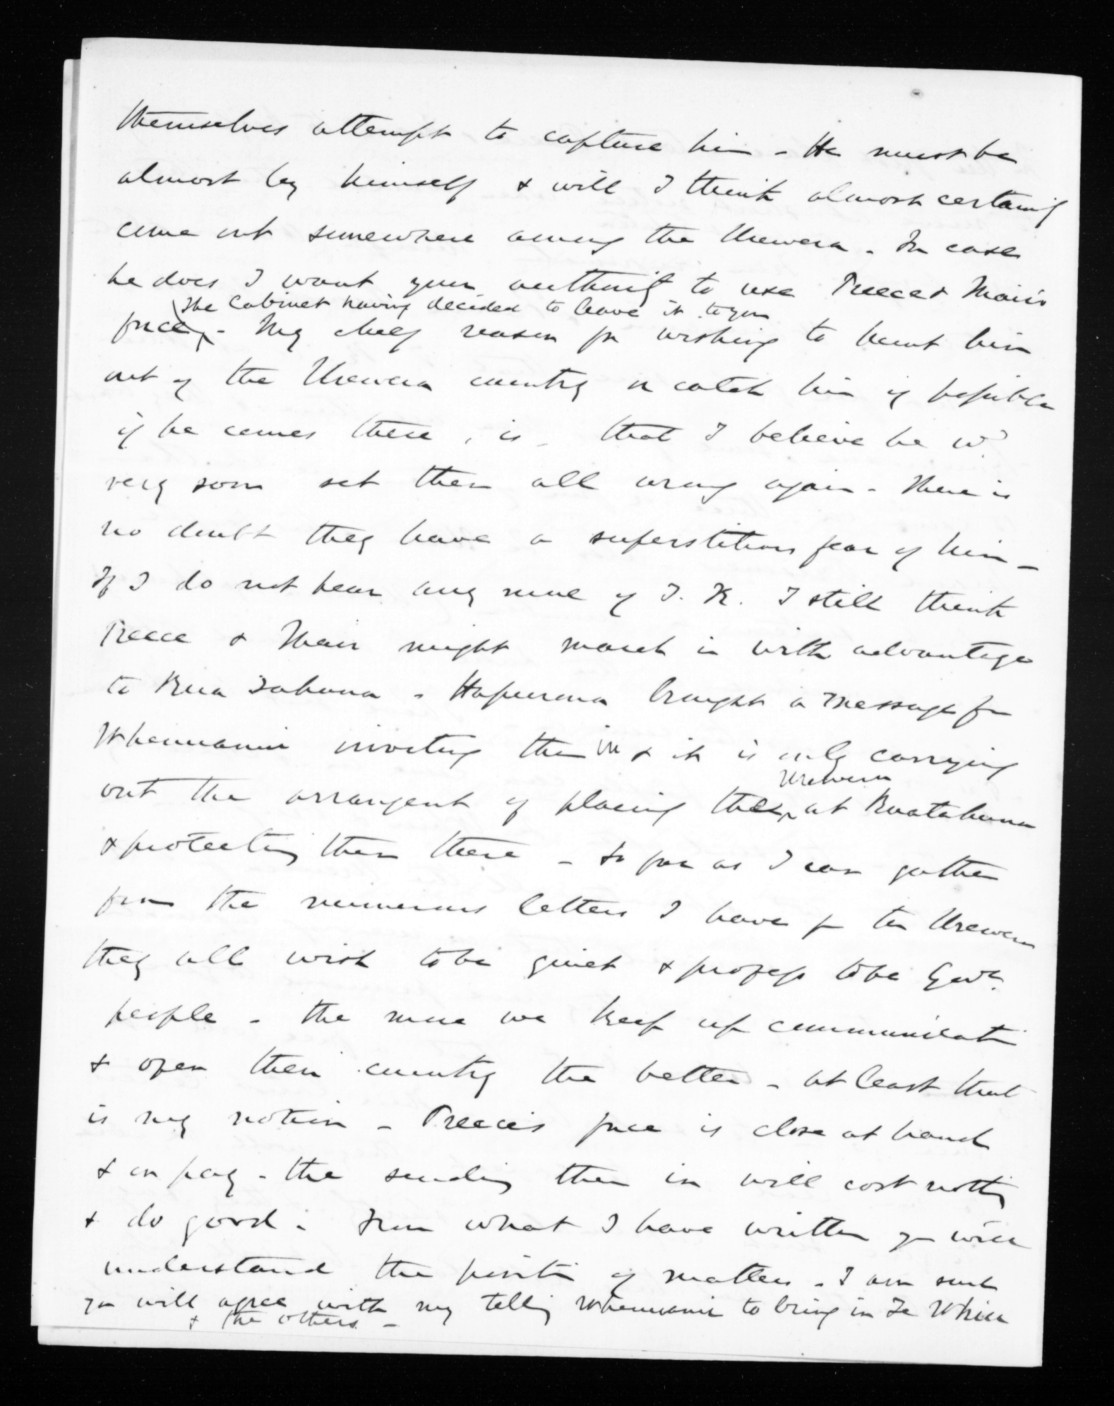 themselves attempt to capture him - He must be
almost by himself & will I think almost certainly
come out somewhere among the Urewera - In case
he does I want your authority to use Preece & Mair's
the Cabinet having decided to leave it to you
force - My chief reason for wishing to hunt him
out of the Urewera country or catch him if possible
if he comes there, is, that I believe he wd
very soon set them all wrong again - There is
no doubt they have a superstitious fear of him -
If I do not hear any more of T. K. I still think
Preece & Mair might march in with advantage
to Rua Tahuna - Hapurona brought a message from
Whenuanui inviting them in & it is only carrying
Urewera
out the arrangent of placing the at Ruatahuna
& protecting them there - So far as I can gather
from the numerous letters I have from the Urewera
they all wish to be quiet & profess to be Govt.
people - the more we keep up communicati
& open their country the better - at least that
is my notion - Preece's force is close at hand
& in pay - the sending them in will cost nothing
& do good - From what I have written you will
understand the positi of matters - I am sure
you will agree with my telling Whenuanui to bring in Te Whiu
& the others -